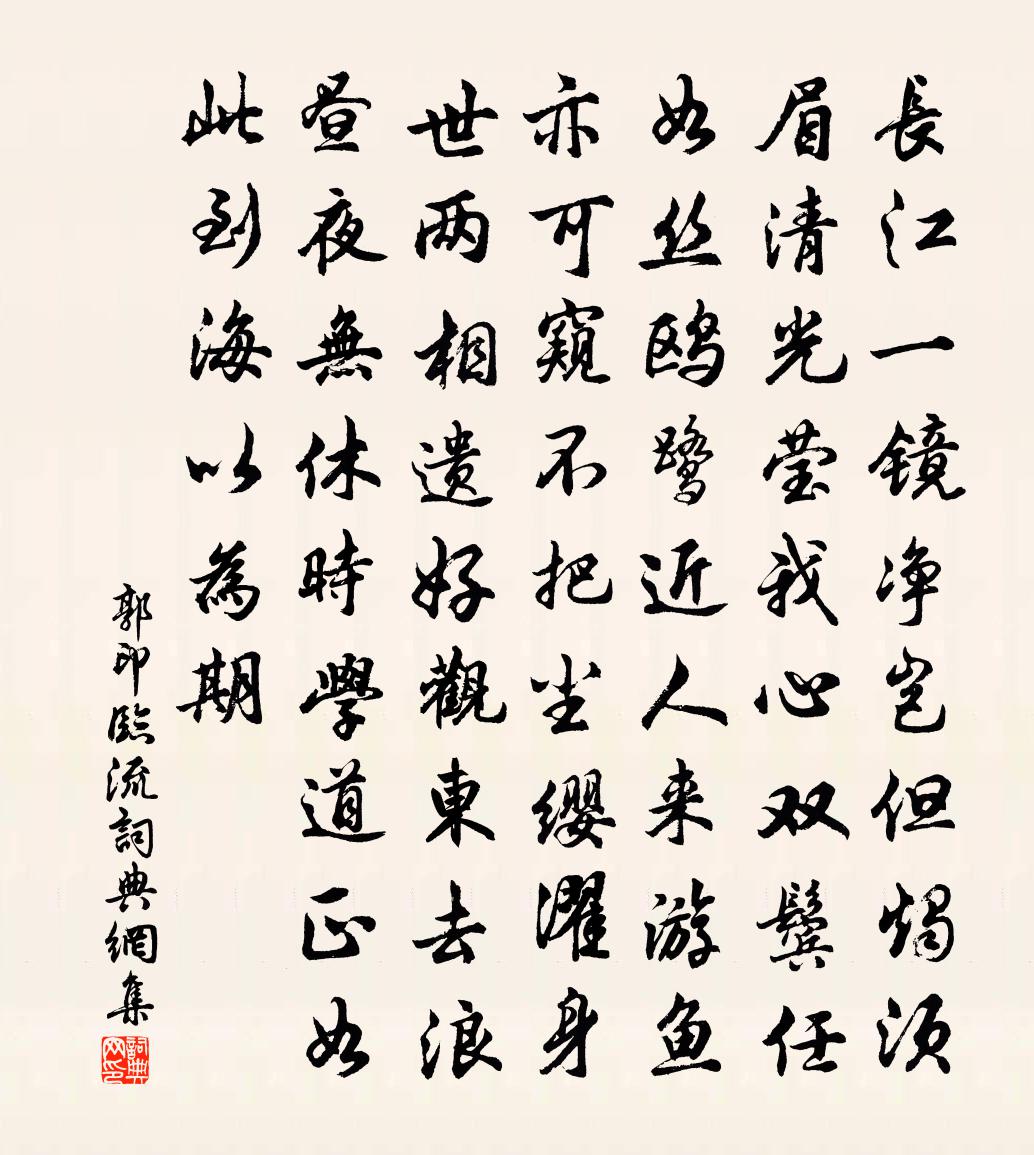 長江一镜净岂但燭须
眉清光莹我心双鬓任
如丝鸥鹭近人来游鱼
亦可窺不把尘缨濯身
世两相遗好觀東去浪
昼夜無休時學道正如
此到海以為期
郭印臨流詞典網集
詞典网印